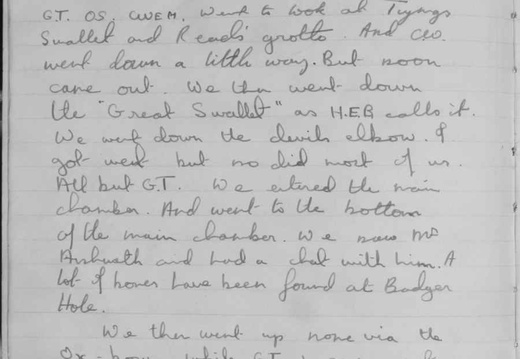 GT. OS. CWEM. Went to look at Tynings
Swallet and Reads' grotto. And CW.
went down a little way. But soon
came out. We then went down
the "Great Swallet" as H.E.B calls it.
We went down the devils elbow. I
got wet but no did most of us.
All but G.T. We entered the main
chamber. And went to the bottom
of the main chamber. We saw Mr
and had a chat with him. A
lot of bones have been found at Badger
Hole.
We then went up via the
while GT